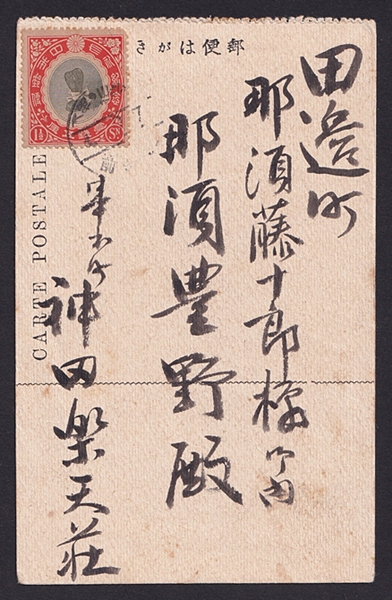 郵便はがき
CARTE POSTALE
田邉町
那須藤十郎様
御内
那須豊野殿
神田楽天荘
1½ Sn